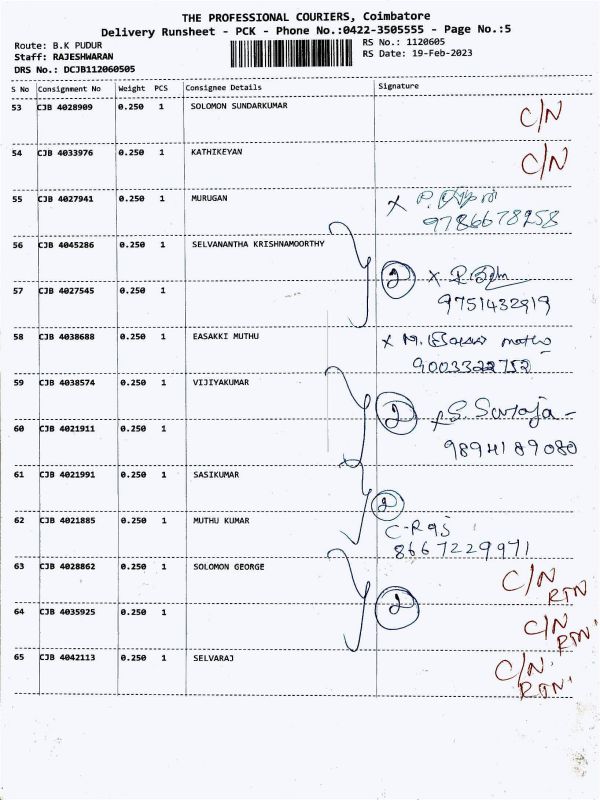 THE PROFESSIONAL COURIERS, Coimbatore
Delivery Runsheet - PCK - Phone No.:0422-3505555 - Page No.:5
Route: B.K PUDUR
RS No.: 1120605
Staff: RAJESHWARAN
RS Date: 19-Feb-2023
DRS No.: DCJB112060505
S No Consignment No Weight PCS Consignee Details Signature
53 CJB 4028909 0.250 1 SOLOMON SUNDARKUMAR C/N
54 CJB 4033976 0.250 1 KATHIKEYAN C/N
55 CJB 4027941 0.250 1 MURUGAN X
9786678958
56 CJB 4045286 0.250 1 SELVANANTHA KRISHNAMOORTHY
2 X
57 CJB 4027545 0.250 1 9751432919
58 CJB 4038688 0.250 1 EASAKKI MUTHU X M.
9003322752
59 CJB 4038574 0.250 1 VIJIYAKUMAR
2 X S. Suraja
60 CJB 4021911 0.250 1
9894189080
61 CJB 4021991 0.250 1 SASIKUMAR
2
62 CJB 4021885 0.250 1 MUTHU KUMAR C-Raj
8667229971
63 CJB 4028862 0.250 1 SOLOMON GEORGE C/N
RTN
2
64 CJB 4035925 0.250 1 C/N
RTN
65 CJB 4042113 0.250 1 SELVARAJ C/N
RTN